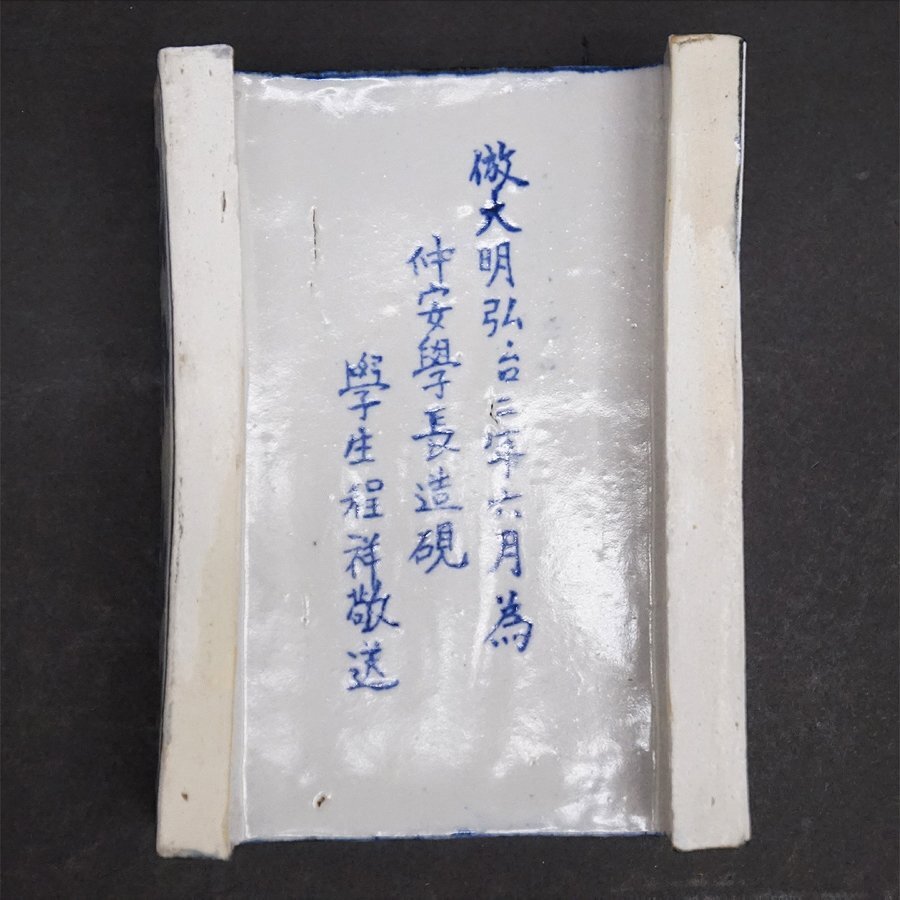 倣大明弘治三年六月為
仲安學長造硯
學生程祥敬送